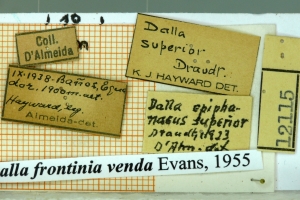 Coll.
D'Almeida
Dalla
superior
Draudt.
K. J. HAYWARD DET.
IX-1938-Baños, Ecua
dor. 1900m. alt.
Hayward, leg.
Almeida-det.
Dalla epipha-
neus superior
Draudt, 1923
D'Alm. det.
12115
alla frontinia venda Evans, 1955